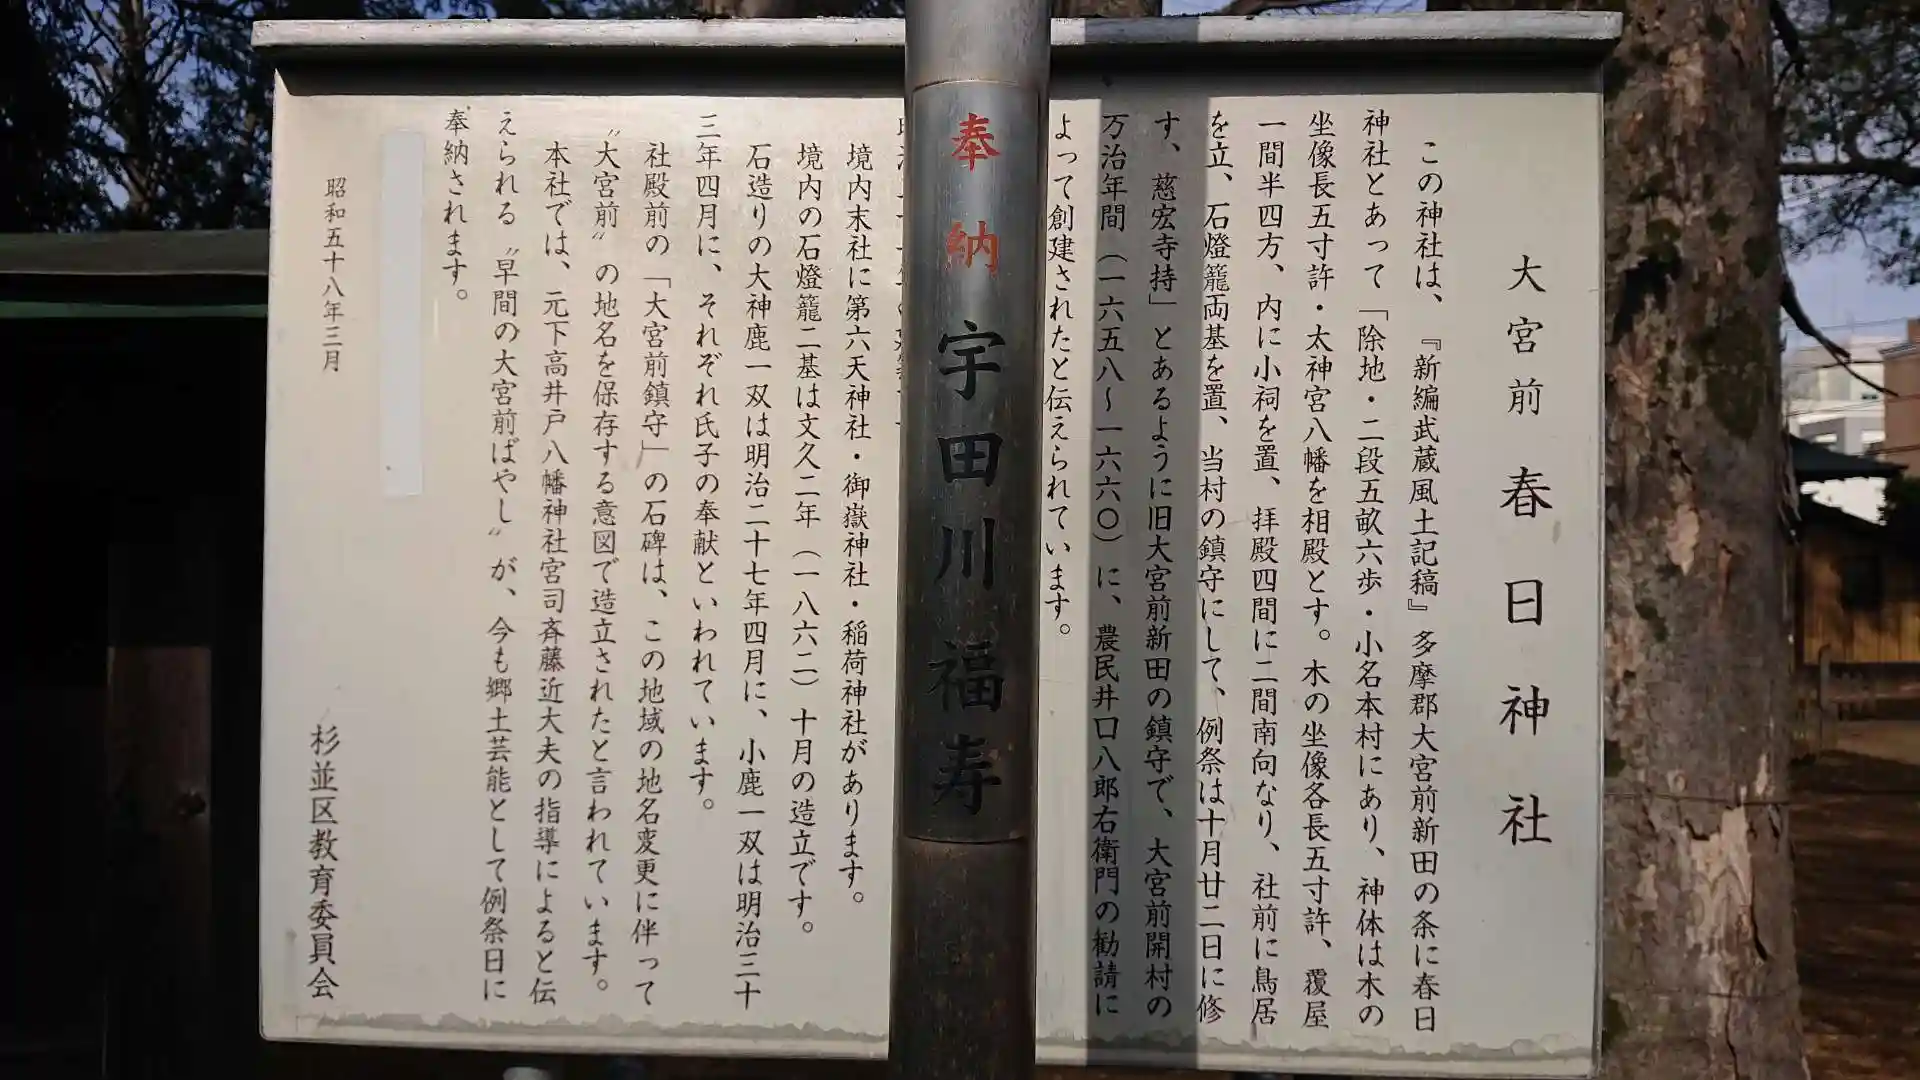 大宮前 春日神社
この神社は、『新編武蔵風土記稿』多摩郡大宮前新田の条に春日
神社とあって「除地・二段五畝六歩・小名本村にあり、神体は木の
坐像長五寸許・太神宮八幡を相殿とす。木の坐像各長五寸許、覆屋
一間半四方、内に小祠を置、拝殿四間に二間南向なり、社前に鳥居
を立、石燈籠両基を置、当村の鎮守にして、例祭は十月廿二日に修
す、慈宏寺持」とあるように旧大宮前新田の鎮守で、大宮前開村の
万治年間(一六五八〜一六六〇)に、農民井口八郎右衛門の勧請に
よって創建されたと伝えられています。
奉納 宇田川福寿
境内末社に第六天神社・御嶽神社・稲荷神社があります。
境内の石燈籠二基は文久二年(一八六二)十月の造立です。
石造りの大神鹿一双は明治二十七年四月に、小鹿一双は明治三十
三年四月に、それぞれ氏子の奉献といわれています。
社殿前の「大宮前鎮守」の石碑は、この地域の地名変更に伴って
〝大宮前〟の地名を保存する意図で造立されたと言われています。
本社では、元下高井戸八幡神社宮司斉藤近大夫の指導によると伝
えられる〝早間の大宮前ばやし〟が、今も郷土芸能として例祭日に
奉納されます。
昭和五十八年三月
杉並区教育委員会